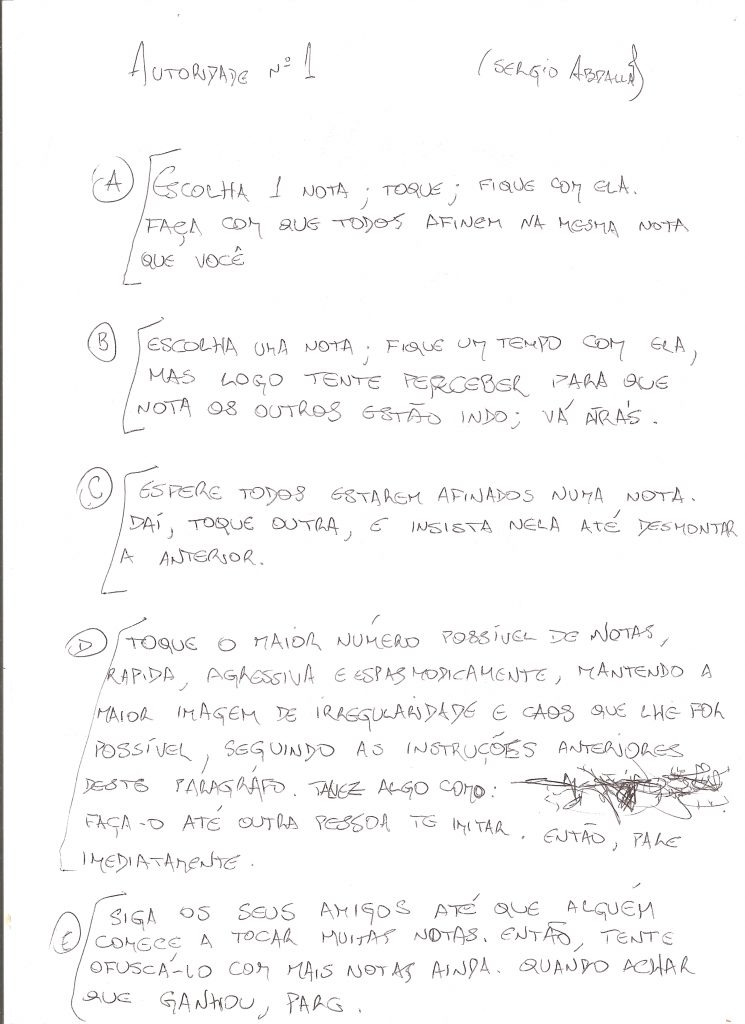 AUTORIDADE Nº 1 (SERGIO ABDALLA)
A ESCOLHA 1 NOTA; TOQUE; FIQUE COM ELA.
FAÇA COM QUE TODOS AFINEM NA MESMA NOTA
QUE VOCÊ
B ESCOLHA UMA NOTA; FIQUE UM TEMPO COM ELA,
MAS LOGO TENTE PERCEBER PARA QUE
NOTA OS OUTROS ESTÃO INDO; VÁ ATRÁS.
C ESPERE TODOS ESTAREM AFINADOS NUMA NOTA.
DAÍ, TOQUE OUTRA, E INSISTA NELA ATÉ DESMONTAR
A ANTERIOR.
D TOQUE O MAIOR NÚMERO POSSÍVEL DE NOTAS,
RAPIDA, AGRESSIVA E ESPASMODICAMENTE, MANTENDO A
MAIOR IMAGEM DE IRREGULARIDADE E CAOS QUE LHE FOR
POSSÍVEL, SEGUINDO AS INSTRUÇÕES ANTERIORES
DESTE PARÁGRAFO. TALVEZ ALGO COMO:
FAÇA-O ATÉ OUTRA PESSOA TE IMITAR. ENTÃO, PARE
IMEDIATAMENTE.
E SIGA OS SEUS AMIGOS ATÉ QUE ALGUÉM
COMECE A TOCAR MUITAS NOTAS. ENTÃO, TENTE
OFUSCÁ-LO COM MAIS NOTAS AINDA. QUANDO ACHAR
QUE GANHOU, PARE.